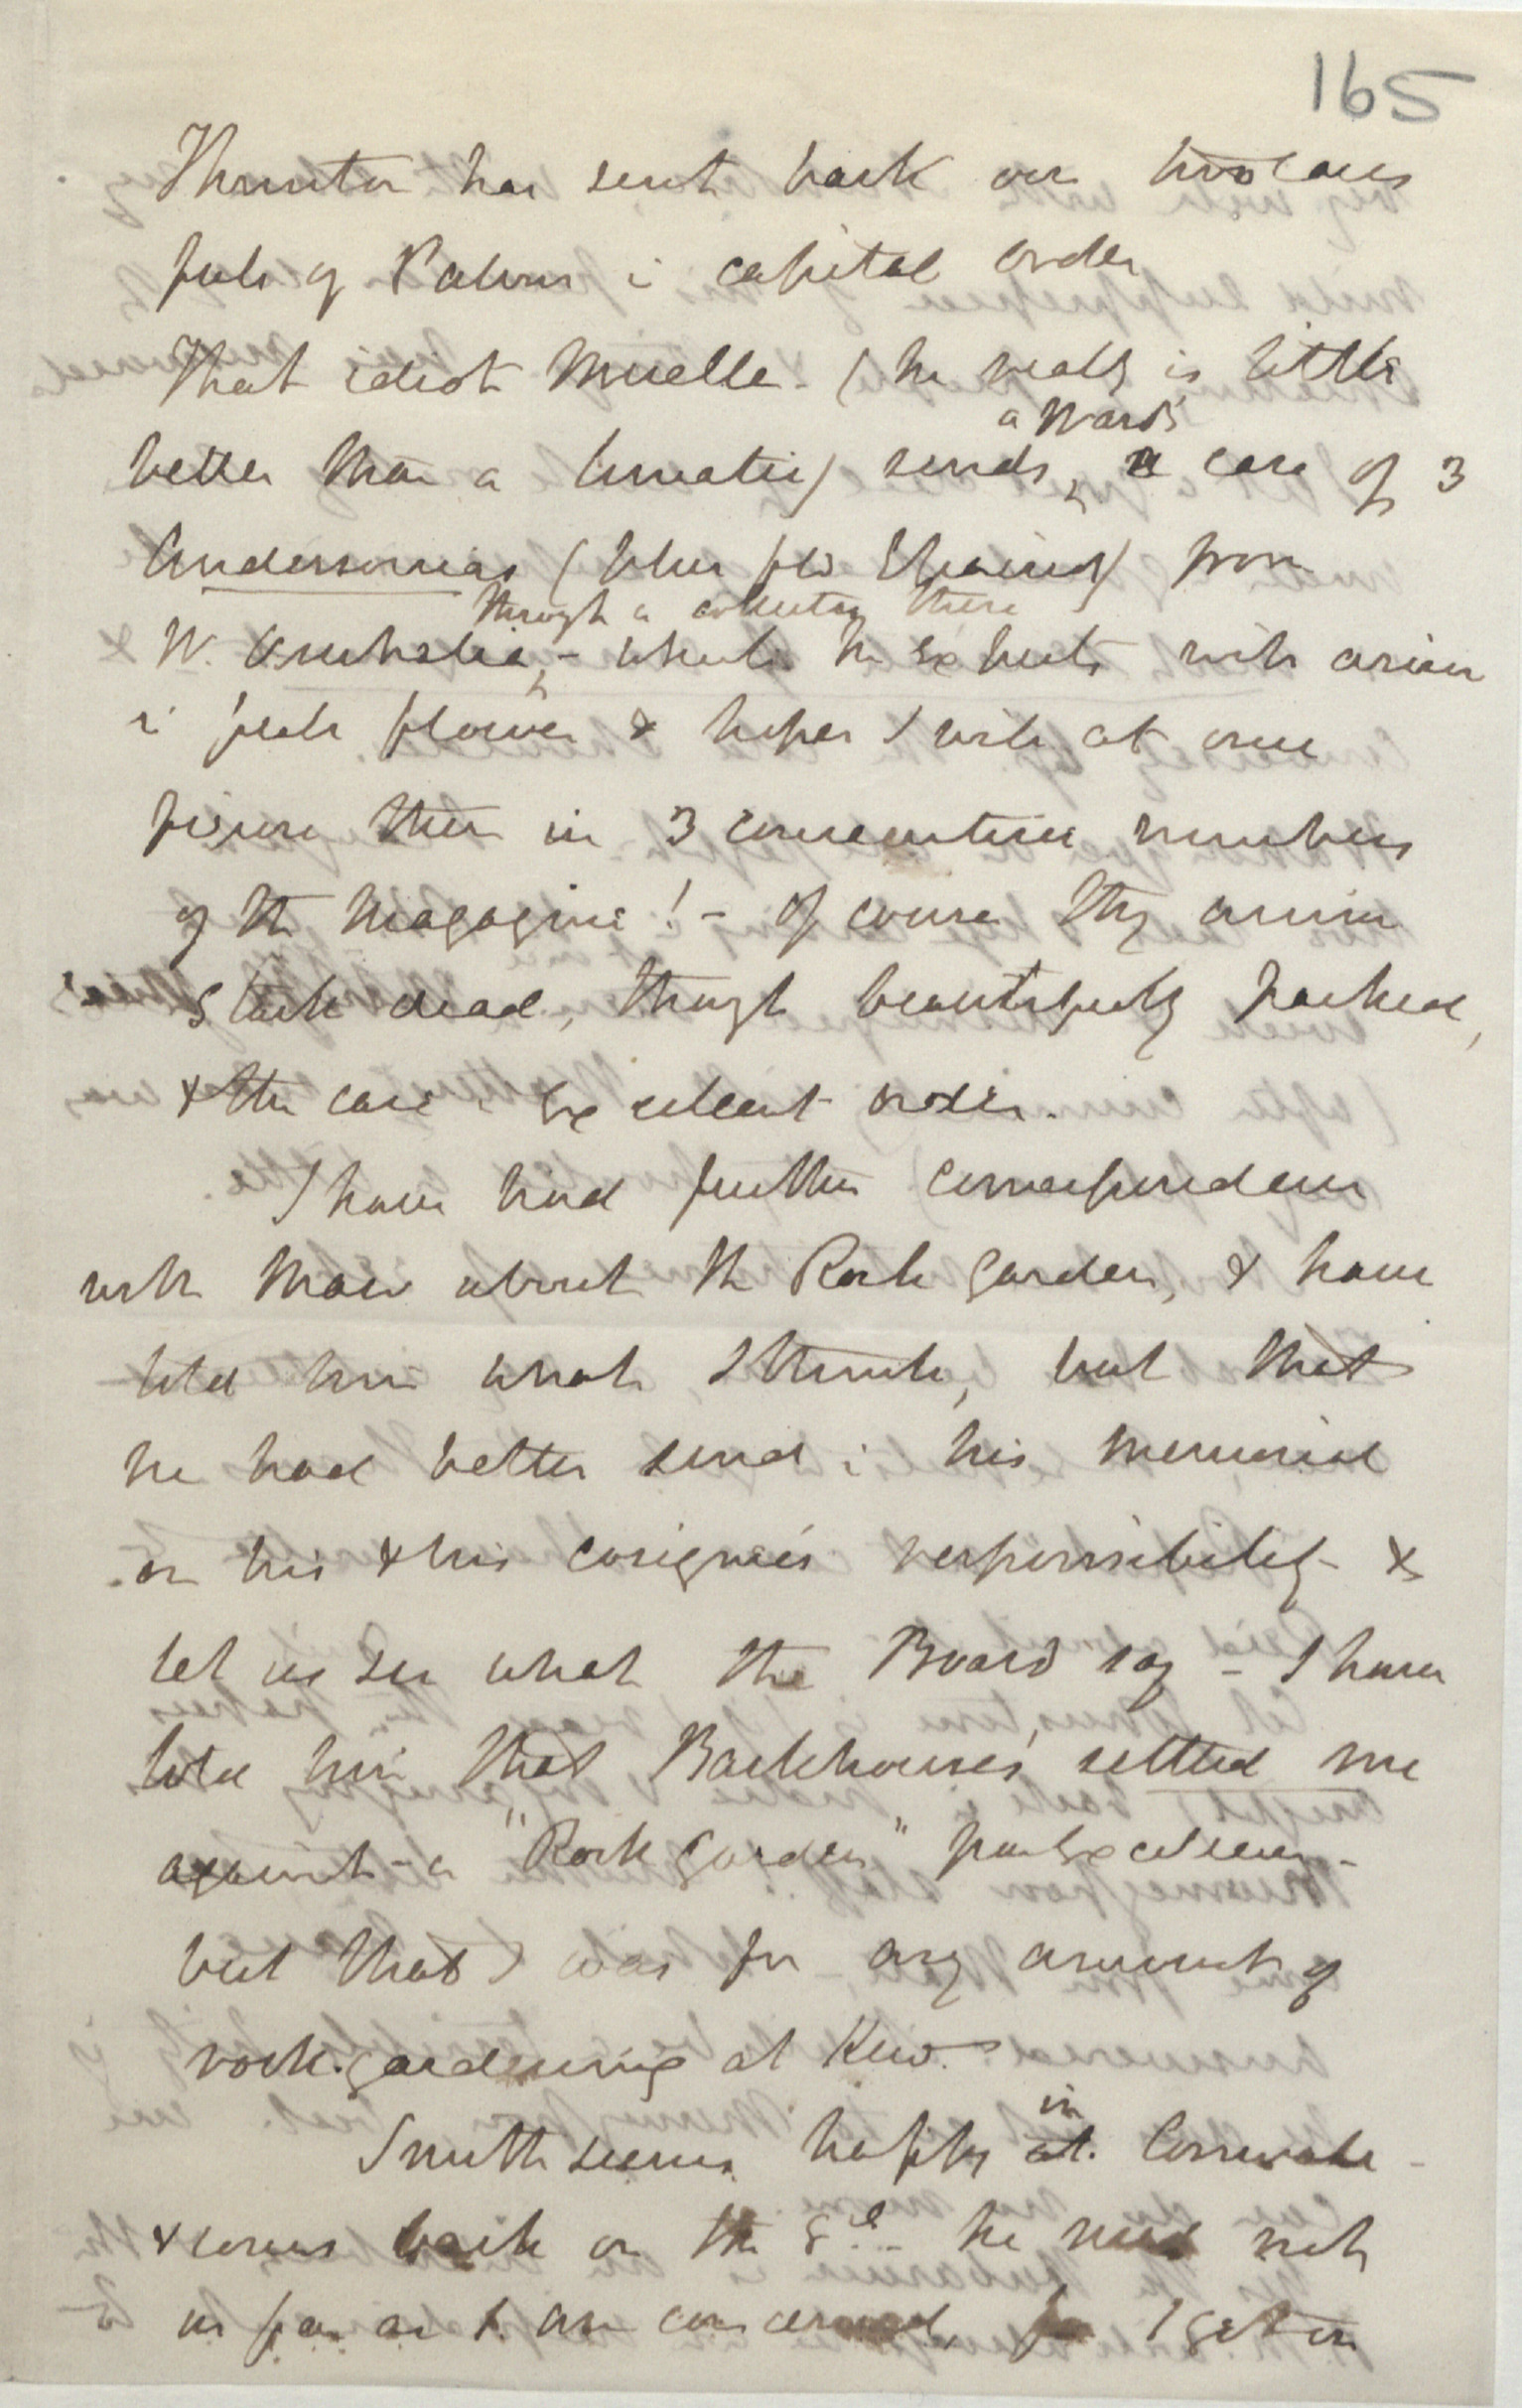 165
Thurston has sent back our two cases
full of Palms i capital order
That idiot Mueller (he really is little
better than a lunatic) sends a Ward's case of 3
Anderssonias (blue fld Epacrids) from
W. Australia, through a collector there - which he expects will arrive
i full flower & hopes I will at once
figure them in 3 consecutive numbers
of the Magazine! - Of course they arrive
stark dead, though beautifully packed,
& the case i excellent order.
I have had further correspondence
with Maw about the Rock garden, & have
told him what I think, but that
he had better send i his memorial
on his & his cosignees responsibility &
let us see what the Board say - I have
told him that Backhouses settled me
against a "Rock garden" par excellence -
but that I was for any amount of
rock-gardening at Kew.
Smith seems happy in at Cornwall -
& comes back on the 8th - he need not
as far as I am concerned, for I get on